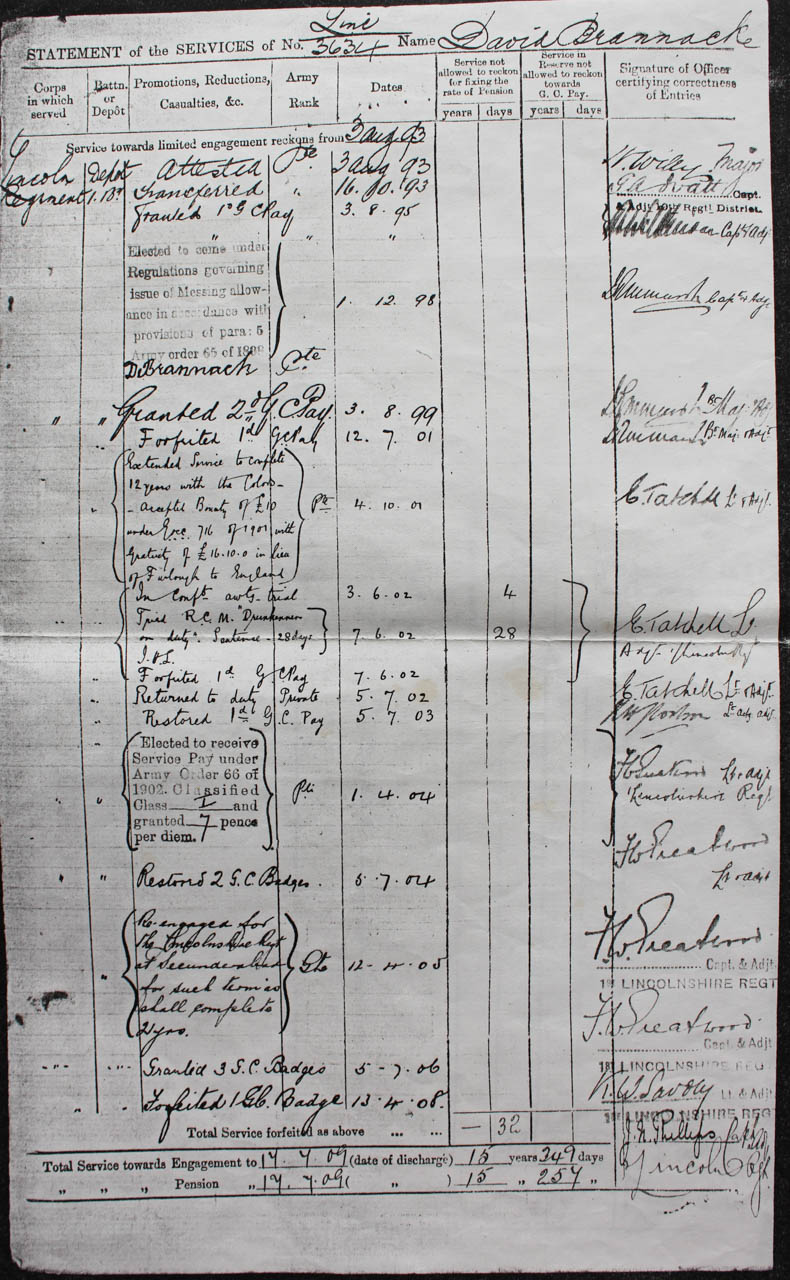 Line
STATEMENT of the SERVICES of No. 3634 Name David Brannack
Corps in which served
Battn. or Depôt
Promotions, Reductions, Casualties, &c.
Army Rank
Dates
Service not allowed to reckon for fixing the rate of Pension
years days
Service in Reserve not allowed to reckon towards G. C. Pay.
years days
Signature of Officer certifying correctness of Entries
Service towards limited engagement reckons from 3 Aug 93
Lincoln Depôt Attested Pte 3 Aug 93 Major
Regiment 1. Bn Transferred " 16. 10. 93 Capt.
& Adjt 10th Regtl District.
Granted 1st G C Pay 3. 8. 95
" " " Capt & Adjt
Elected to come under
Regulations governing
issue of Messing allow-
ance in accordance with
provisions of para: 5
Army order 65 of 1898
1. 12. 98 Capt & Adjt
D. Brannack Pte
" " Granted 2nd G. C Pay. 3. 8. 99 Bt Maj. & Adjt
Forfeited 1d G C Pay 12. 7. 01 Bt Maj. & Adjt
Extended Service to complete
12 years with the Colors -
- accepted Bounty of £10
under 716 of 1901 with
Gratuity of £16.10.0 in lieu
of Furlough to England
" Pte 4. 10. 01 E. Tatchell Lt & Adjt.
In Conft. awtg. trial 3. 6. 02 4
Tried R.C.M. "Drunkenness
on duty". Sentence - 28 days 7. 6. 02 28 E. Tatchell Lt
I.H.L. Adjt. 1/Lincoln Rgt
" Forfeited 1d G C Pay 7. 6. 02
" Returned to duty Private 5. 7. 02 E. Tatchell Lt & Adjt.
" Restored 1d G. C. Pay 5. 7. 03
Elected to receive
Service Pay under
Army Order 66 of
1902. Classified
Class I and
granted 7 pence
per diem.
" Pte 1. 4. 04 Lt & Adjt
Lincolnshire Regt
F.W. Greatwood
Lt & Adjt
" " Restored 2 G.C Badges. 5. 7. 04
Re-engaged for
the Lincolnshire Regt
at Secunderabad
for such term as
shall complete
21 yrs.
" Pte 12 - 4 - 05
F.W. Greatwood
Capt. & Adjt.
1st LINCOLNSHIRE REGT
F.W. Greatwood
Capt. & Adjt
1st LINCOLNSHIRE REGT
" " Granted 3 G.C Badges 5 - 7. 06
" " Forfeited 1 G.C. Badge 13. 4. 08.
Savory Lt & Adjt
1st LINCOLNSHIRE REGT
Total Service forfeited as above ... ... — 32
J. Phillips
Lincoln Rgt
Total Service towards Engagement to 17. 7. 09 (date of discharge) 15 years 349 days
" " " Pension " 17. 7. 09 ( " ) 15 " 257 "